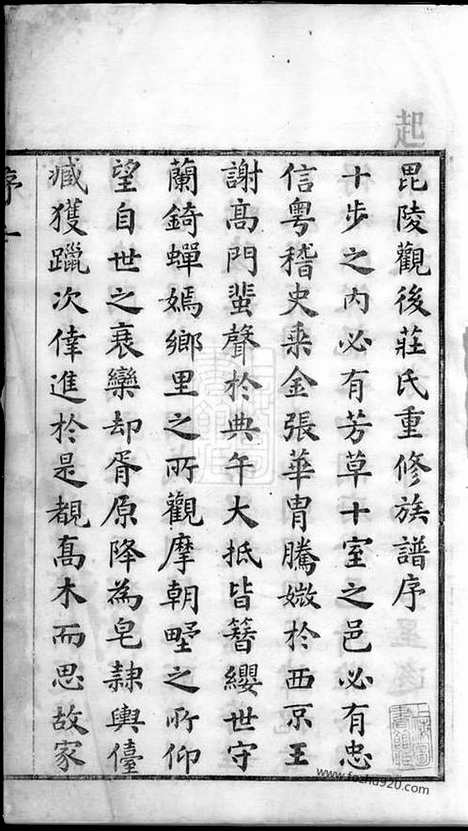 毘陵觀後莊氏重修族譜序
十步之内必有芳草十室之邑必有忠
信粤稽史乗金張華胄騰媺於西京王
謝髙門蜚聲於典午大抵皆簪纓世守
蘭錡蟬嫣鄉里之所觀摩朝野之所仰
望自世之衰欒却胥原降為皂隸輿儓
臧獲躐次倖進於是覩喬木而思故家
序
一
起
www.fozhu920.com